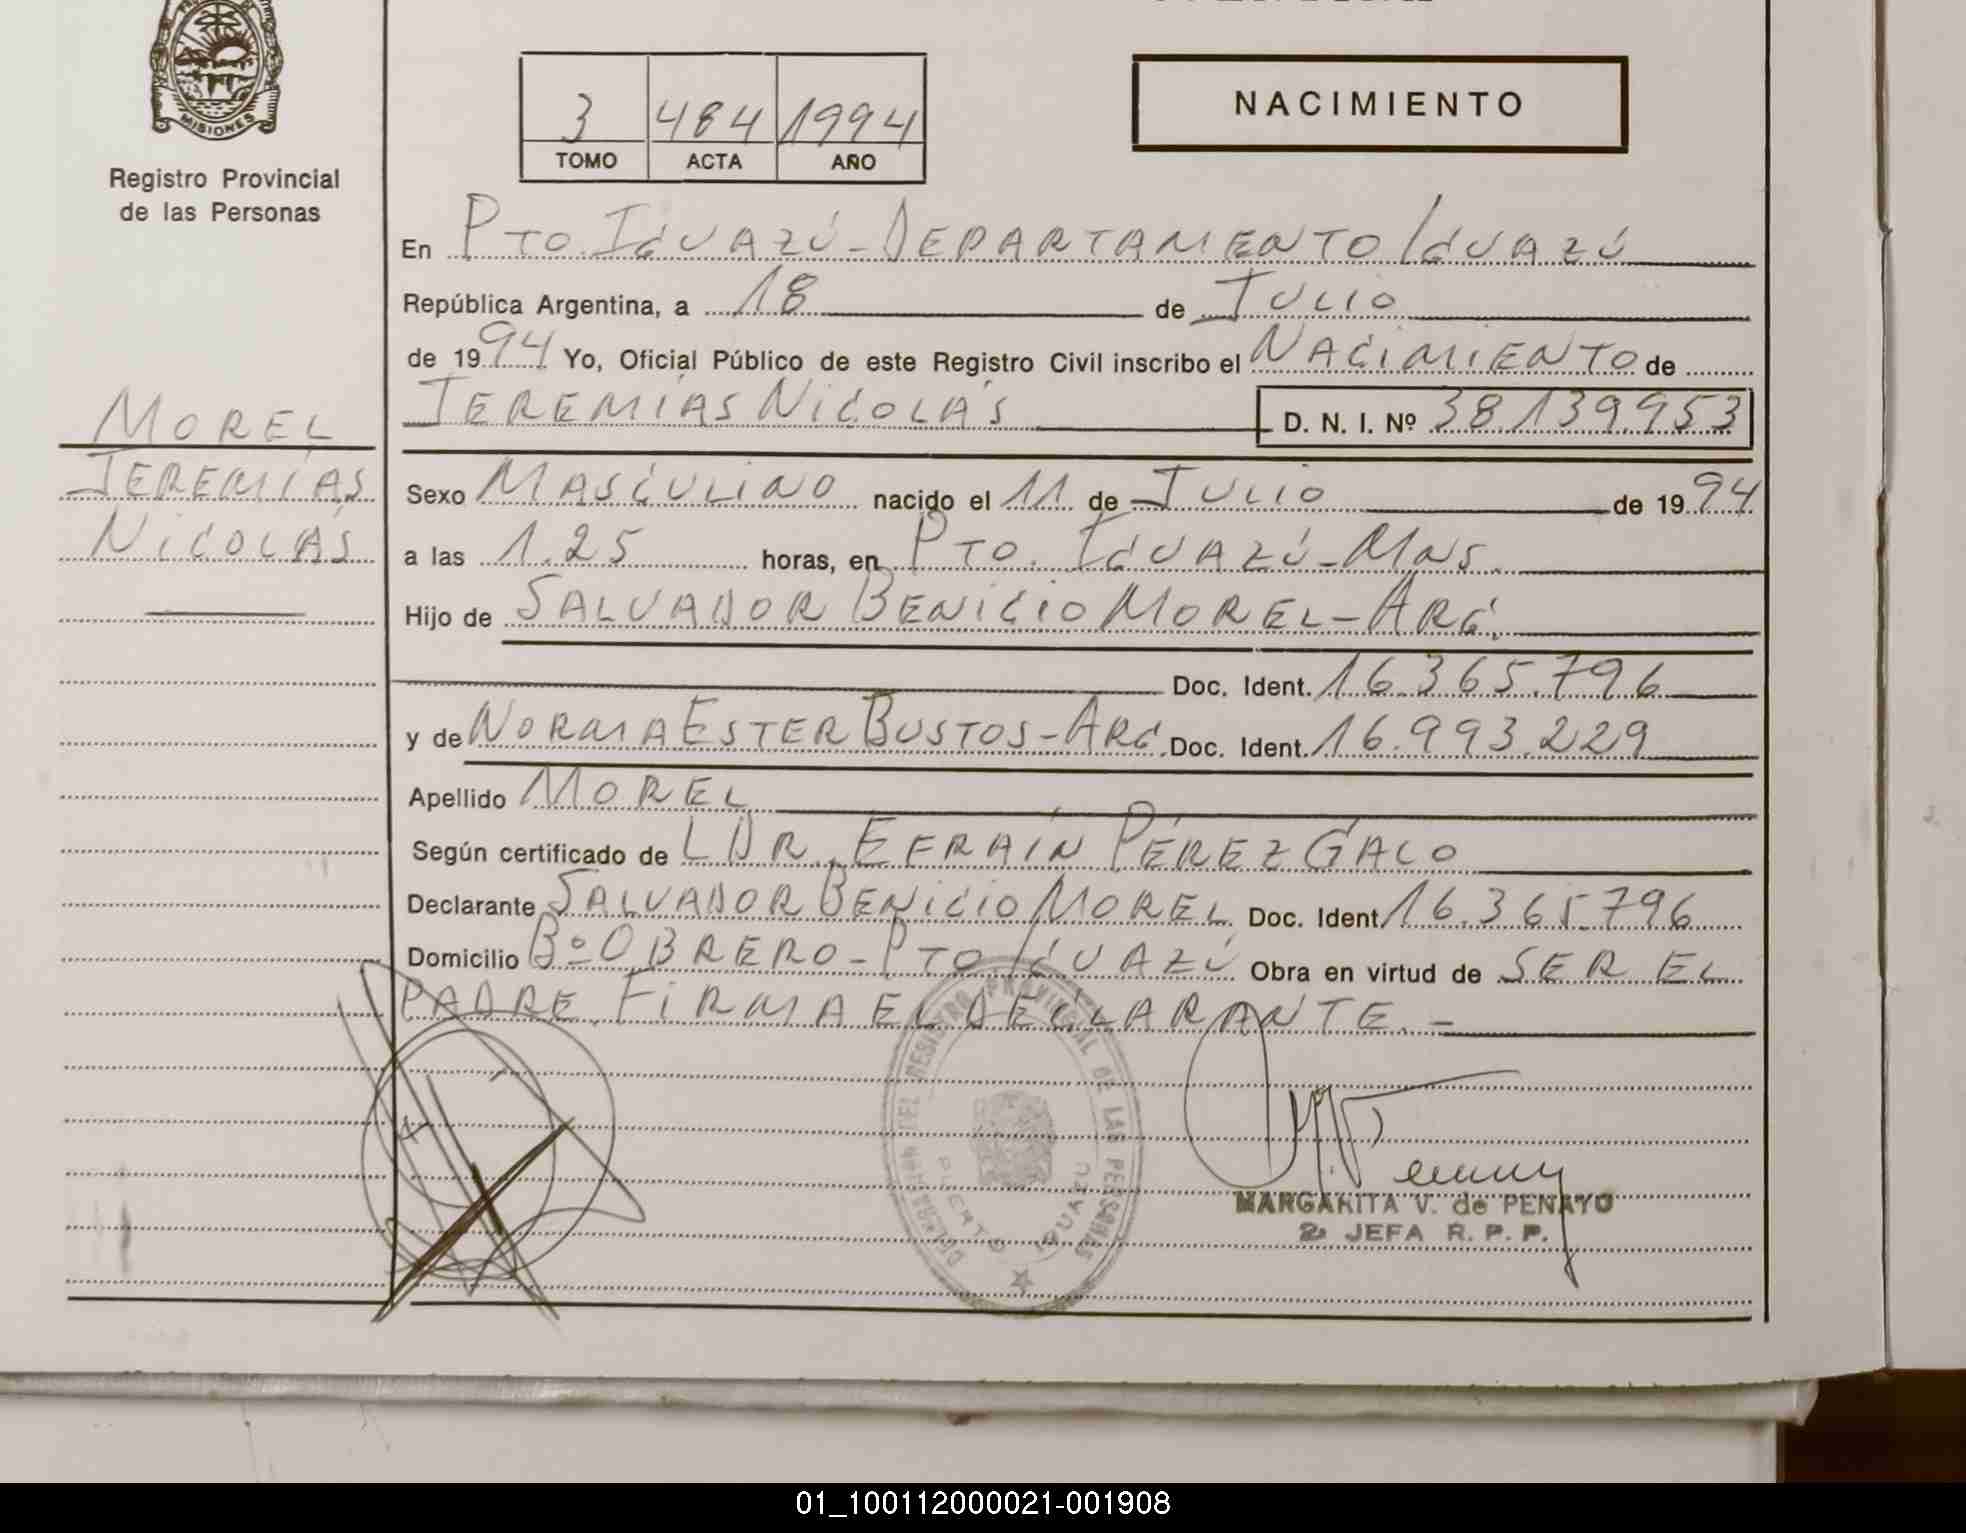 MISIONES
Registro Provincial
de las Personas
3 484 1994
TOMO ACTA AÑO
NACIMIENTO
En PTO. IGUAZÚ - DEPARTAMENTO IGUAZÚ
República Argentina, a 18 de JULIO
de 1994 Yo, Oficial Público de este Registro Civil inscribo el NACIMIENTO de
JEREMÍAS NICOLÁS D. N. I. Nº 38.139.953
MOREL
JEREMÍAS
NICOLÁS
Sexo MASCULINO nacido el 11 de JULIO de 1994
a las 1.25 horas, en PTO. IGUAZÚ - MNS.
Hijo de SALVADOR BENICIO MOREL - ARG.
Doc. Ident. 16.365.796
y de NORMA ESTER BUSTOS - ARG. Doc. Ident. 16.993.229
Apellido MOREL
Según certificado de L DR. EFRAÍN PÉREZ GALO
Declarante SALVADOR BENICIO MOREL Doc. Ident. 16.365.796
Domicilio Bº OBRERO - PTO IGUAZÚ Obra en virtud de SER EL
PADRE. FIRMA EL DECLARANTE. -
REGISTRO PROVINCIAL DE LAS PERSONAS
PUERTO IGUAZU
MARGARITA V. de PENAYO
2ª JEFA R. P. P.
01_100112000021-001908